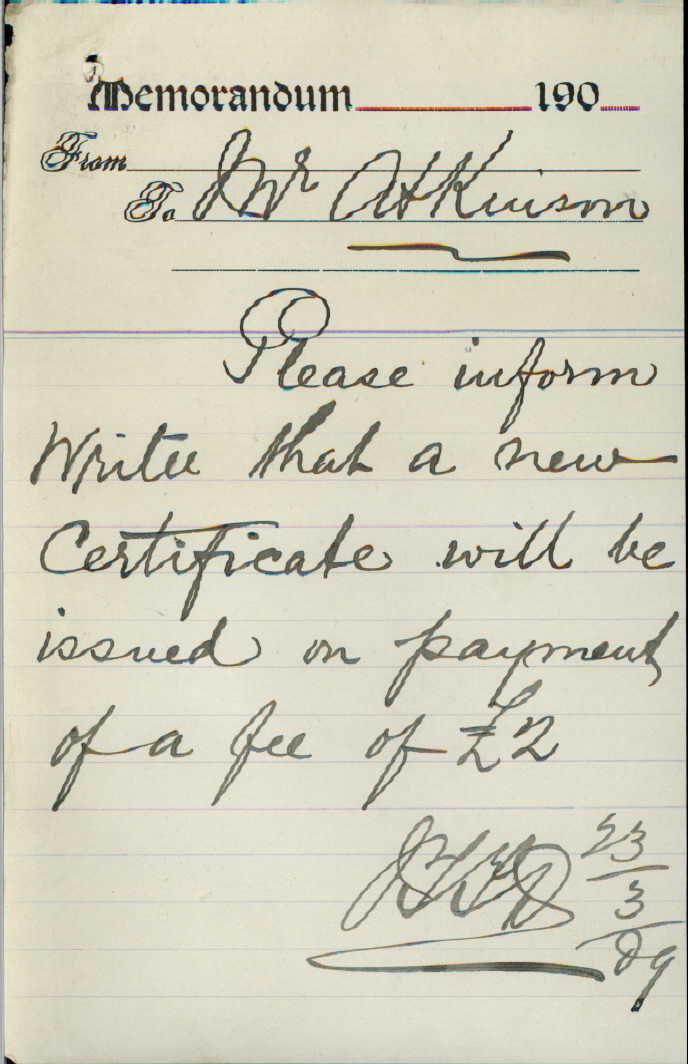 Memorandum 190
From
To Mr Atkinson
Please inform
Writer that a new
Certificate will be
issued on payment
of a fee of £2
23
3
09